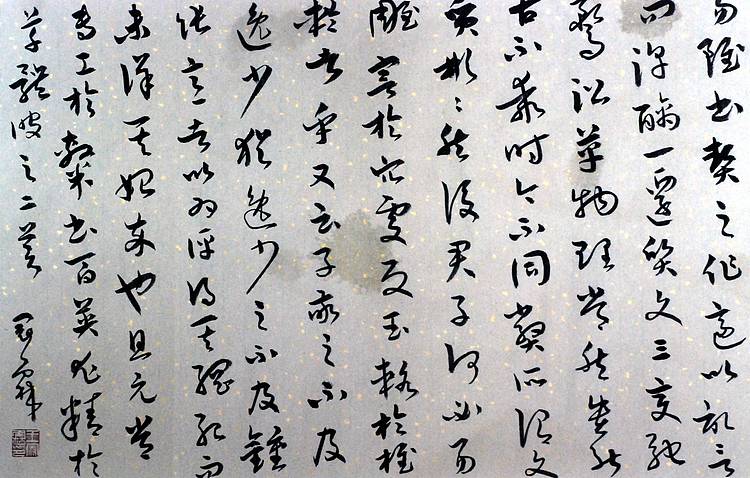 易雖書契之作適以記言
而淳醨一遷質文三變馳
騖沿革物理常然貴能
古不乖時今不同弊所謂文
質彬〻然後君子何必易
雕宮於穴處反玉輅於椎
輪者乎又云子敬之不及
逸少猶逸少之不及鍾
張意者以為評得其綱紀而
未詳其始卒也且元常
專工於隸書百英尤精於
草體彼之二美